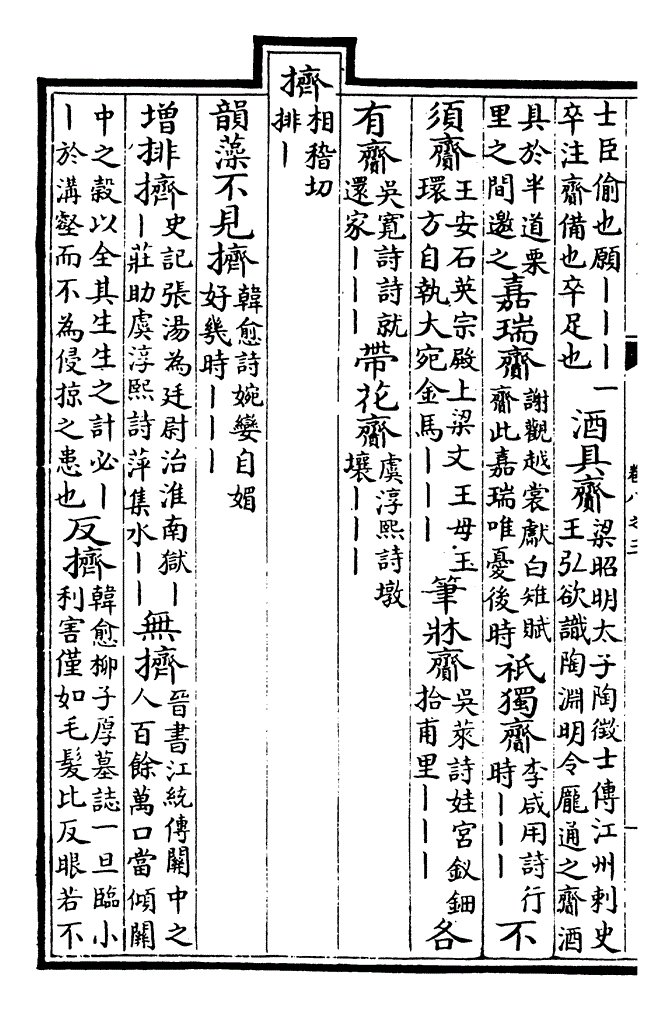 士臣偷也願丨丨丨一酒具齎梁昭明太子陶徵士傳江州刺史
卒注齎備也卒足也王弘欲識陶淵明令龐通之齎酒
具於半道栗里之間邀之嘉瑞齎謝觀越裳獻白雉賦齎此嘉瑞唯憂後時祇獨齎李咸用詩行時丨丨丨不
須齎王安石英宗殿上梁文王母玉環方自執大宛金馬丨丨丨筆牀齎吳萊詩娃宮釵鈿拾甫里丨丨丨各
有齎吳寬詩詩就還家丨丨丨帶花齎虞淳熙詩墩壤丨丨丨
擠相稽切排丨
韻藻不見擠韓愈詩婉孌自媚好幾時丨丨丨
增排擠史記張湯為廷尉治淮南獄丨丨莊助虞淳熙詩萍集水丨丨無擠晉書江統傳關中之人百餘萬口當傾關
中之穀以全其生生之計必丨丨於溝壑而不為侵掠之患也反擠韓愈柳子厚墓誌一旦臨小利害僅如毛髮比反眼若不
卷八之三